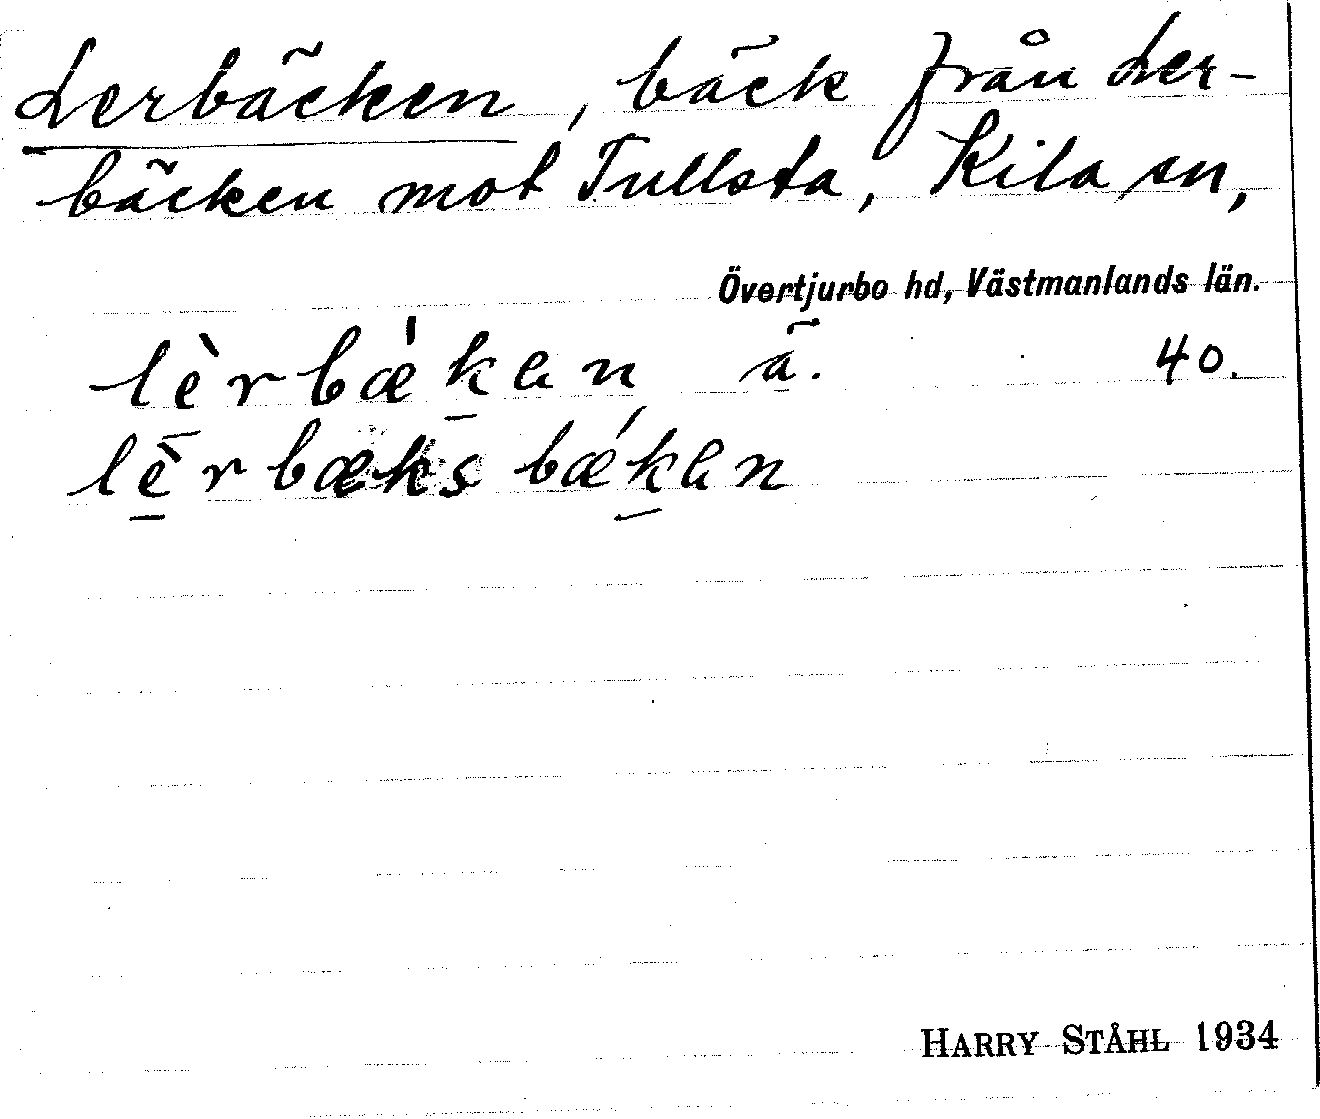 Lerbäcken, bäck från Ler-
bäcken mot Tullsta, Kila sn,
Övertjurbo hd, Västmanlands län.
lèrbǽkan ä. 40.
lèrbæksbǽkan
HARRY STÅHL 1934